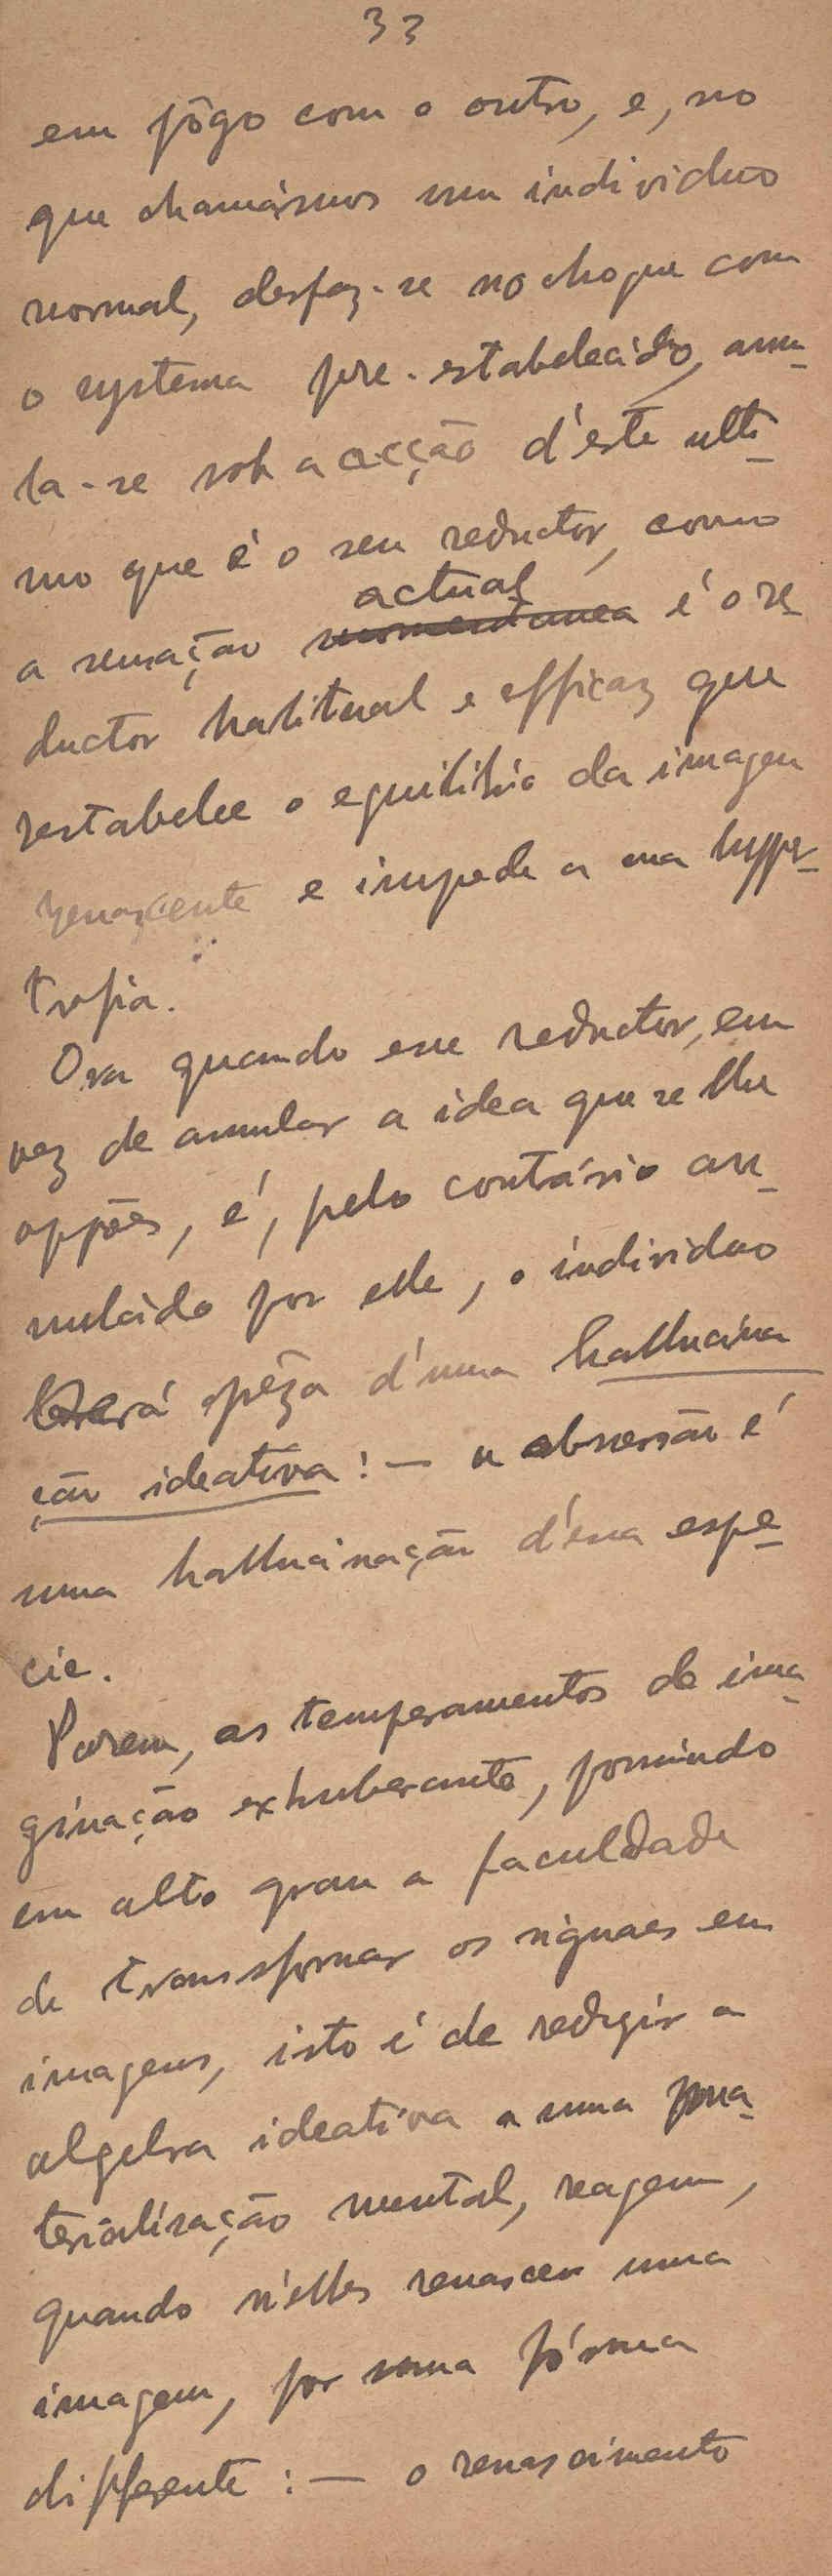 33
em jôgo com o outro, e, no
que chamámos um individuo
normal, desfaz-se no choque com
o systema pre-estabelecido, annu-
la-se sob a acção d'este ulti-
mo que é o seu reductor, como
actual
a sensação momentanea é o re-
ductor habitual e efficaz que
restabelece o equilibrio da imagem
renascente e impede a sua hyper-
trofia.
Ora quando esse reductor, em
vez de annular a idea que se lhe
oppões, é, pelo contrário an-
nulado por elle, o individuo
será prêza d'uma hallucina
ção ideativa: — a obsessão é
uma hallucinação d'essa espe-
cie.
Porem, as temperamentos de ima-
ginação exhuberante, possuindo
em alto grau a faculdade
de transformar os signaes em
imagens, isto é de redigir a
algebra ideativa a uma ma-
terialisação mental, reagem,
quando n'elles renascer uma
imagem, por uma fórma
differente: — o renascimento